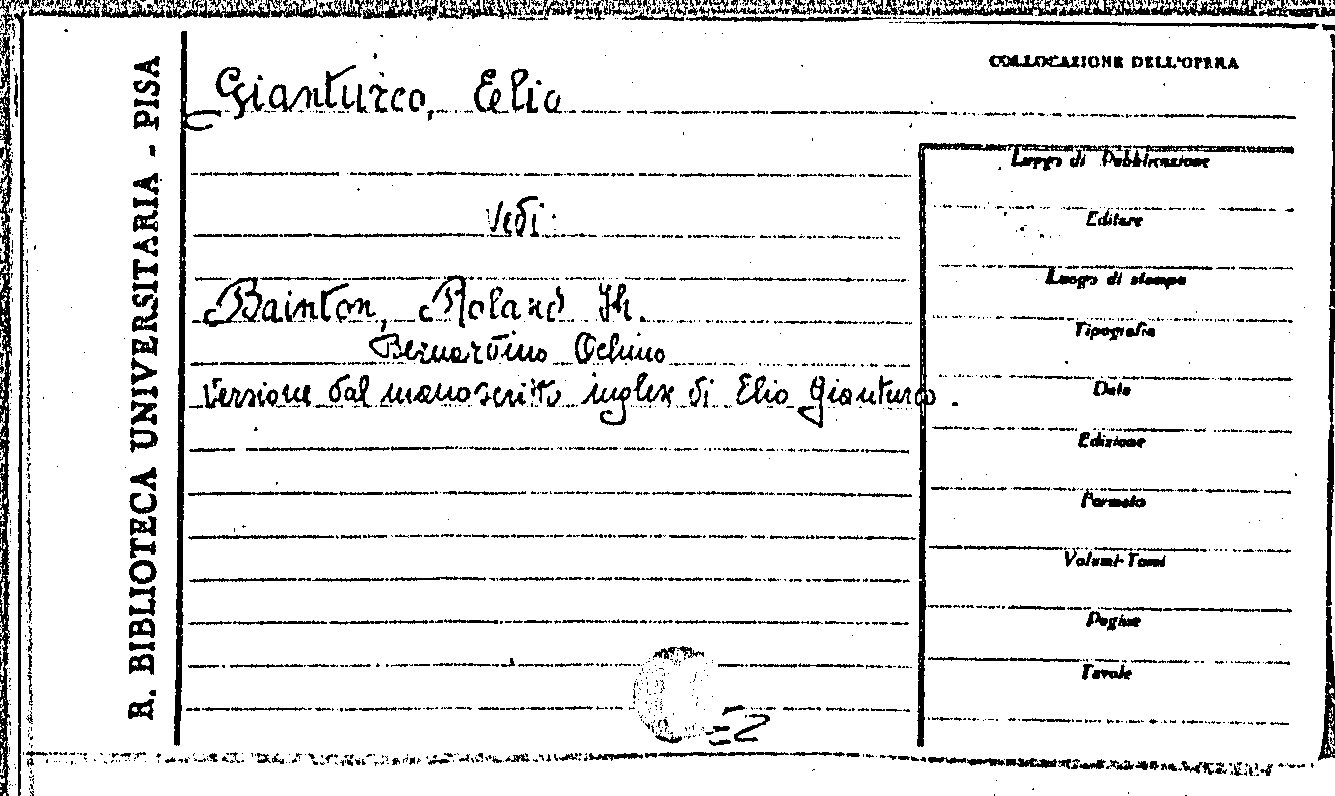 R. BIBLIOTECA UNIVERSITARIA - PISA
COLLOCAZIONE DELL'OPERA
Gianturco, Elio
Luogo di Pubblicazione
Vedi:
Editore
Luogo di stampa
Bainton, Roland H.
Tipografia
Bernardino Ochino
Versione dal manoscritto inglese di Elio Gianturco.
Data
Edizione
Formato
Volumi-Tomi
Pagine
Tavole